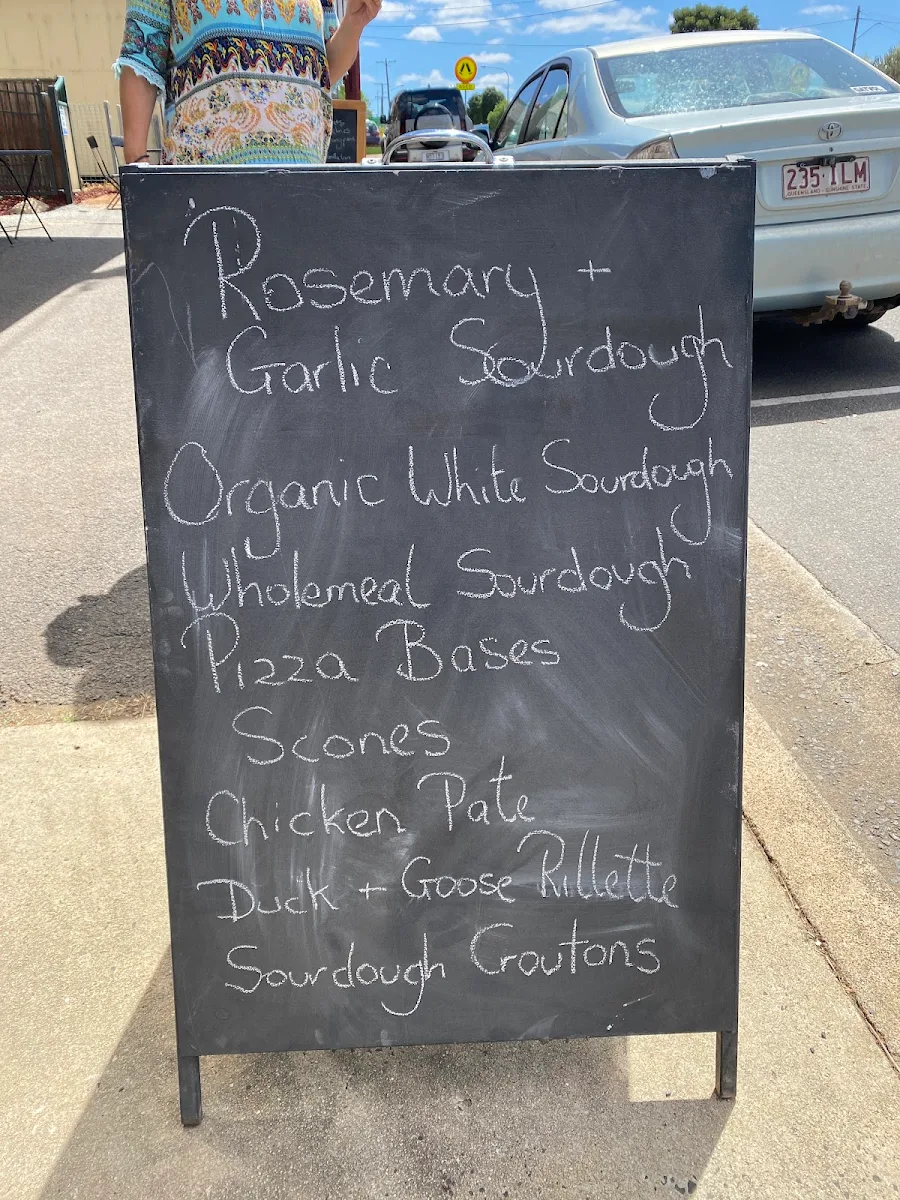 Rosemary +
Garlic Sourdough
Organic White Sourdough
Wholemeal Sourdough
Pizza Bases
Scones
Chicken Pate
Duck + Goose Rillette
Sourdough Croutons
235·ILM
QUEENSLAND - SUNSHINE STATE